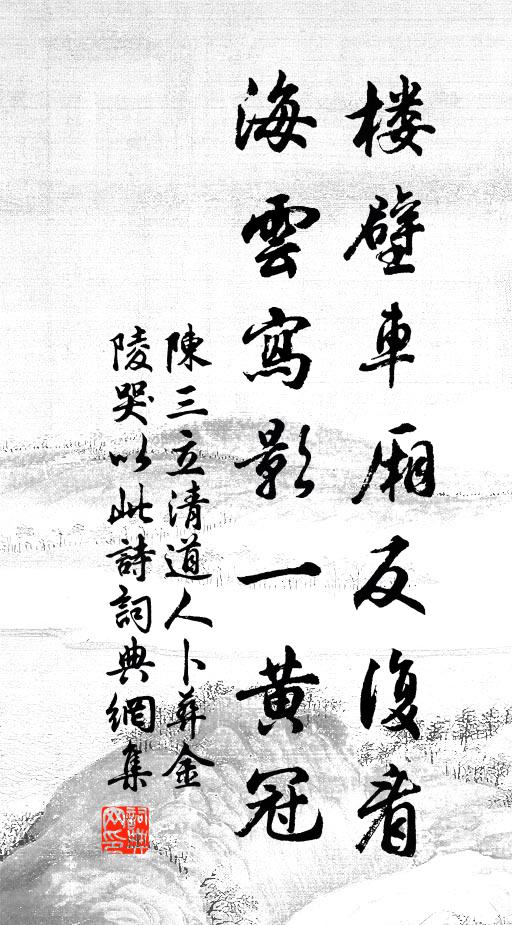 楼壁車厢反復看
海雲寫影一黃冠
陳三立清道人卜葬金
陵哭以此詩詞典網集